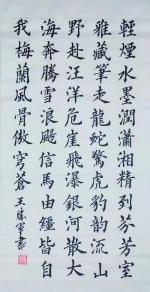 輕煙水墨潤瀟湘精到芬芳室
雅藏筆走龍蛇驚虎豹韻流山
野赴汪洋危崖飛瀑銀河散大
海奔騰雪浪颺信馬由繮皆自
我梅蘭風骨傲穹蒼 王勝軍書